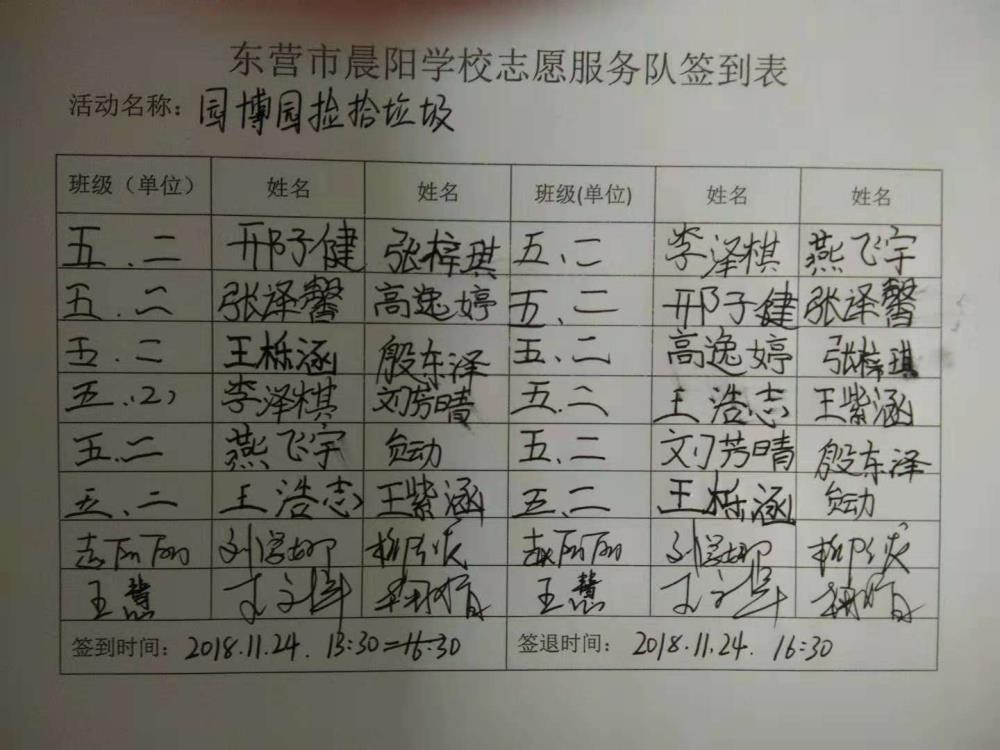 东营市晨阳学校志愿服务队签到表
活动名称：园博园捡拾垃圾
班级（单位） 姓名 姓名 班级(单位) 姓名 姓名
五、二 邢子健 张梓琪 五、二 李泽棋 燕飞宇
五、二 张译馨 高逸婷 五、二 邢子健 张译馨
五、二 王栎涵 殷东泽 五、二 高逸婷 张梓琪
五、(2) 李泽棋 刘芳晴 五、二 王浩志 王紫涵
五、二 燕飞宇 五、二 刘芳晴 殷东泽
五、二 王浩志 王紫涵 五、二 王栎涵
王慧 王慧
签到时间：2018.11.24. 13:30—16:30 签退时间：2018.11.24. 16:30